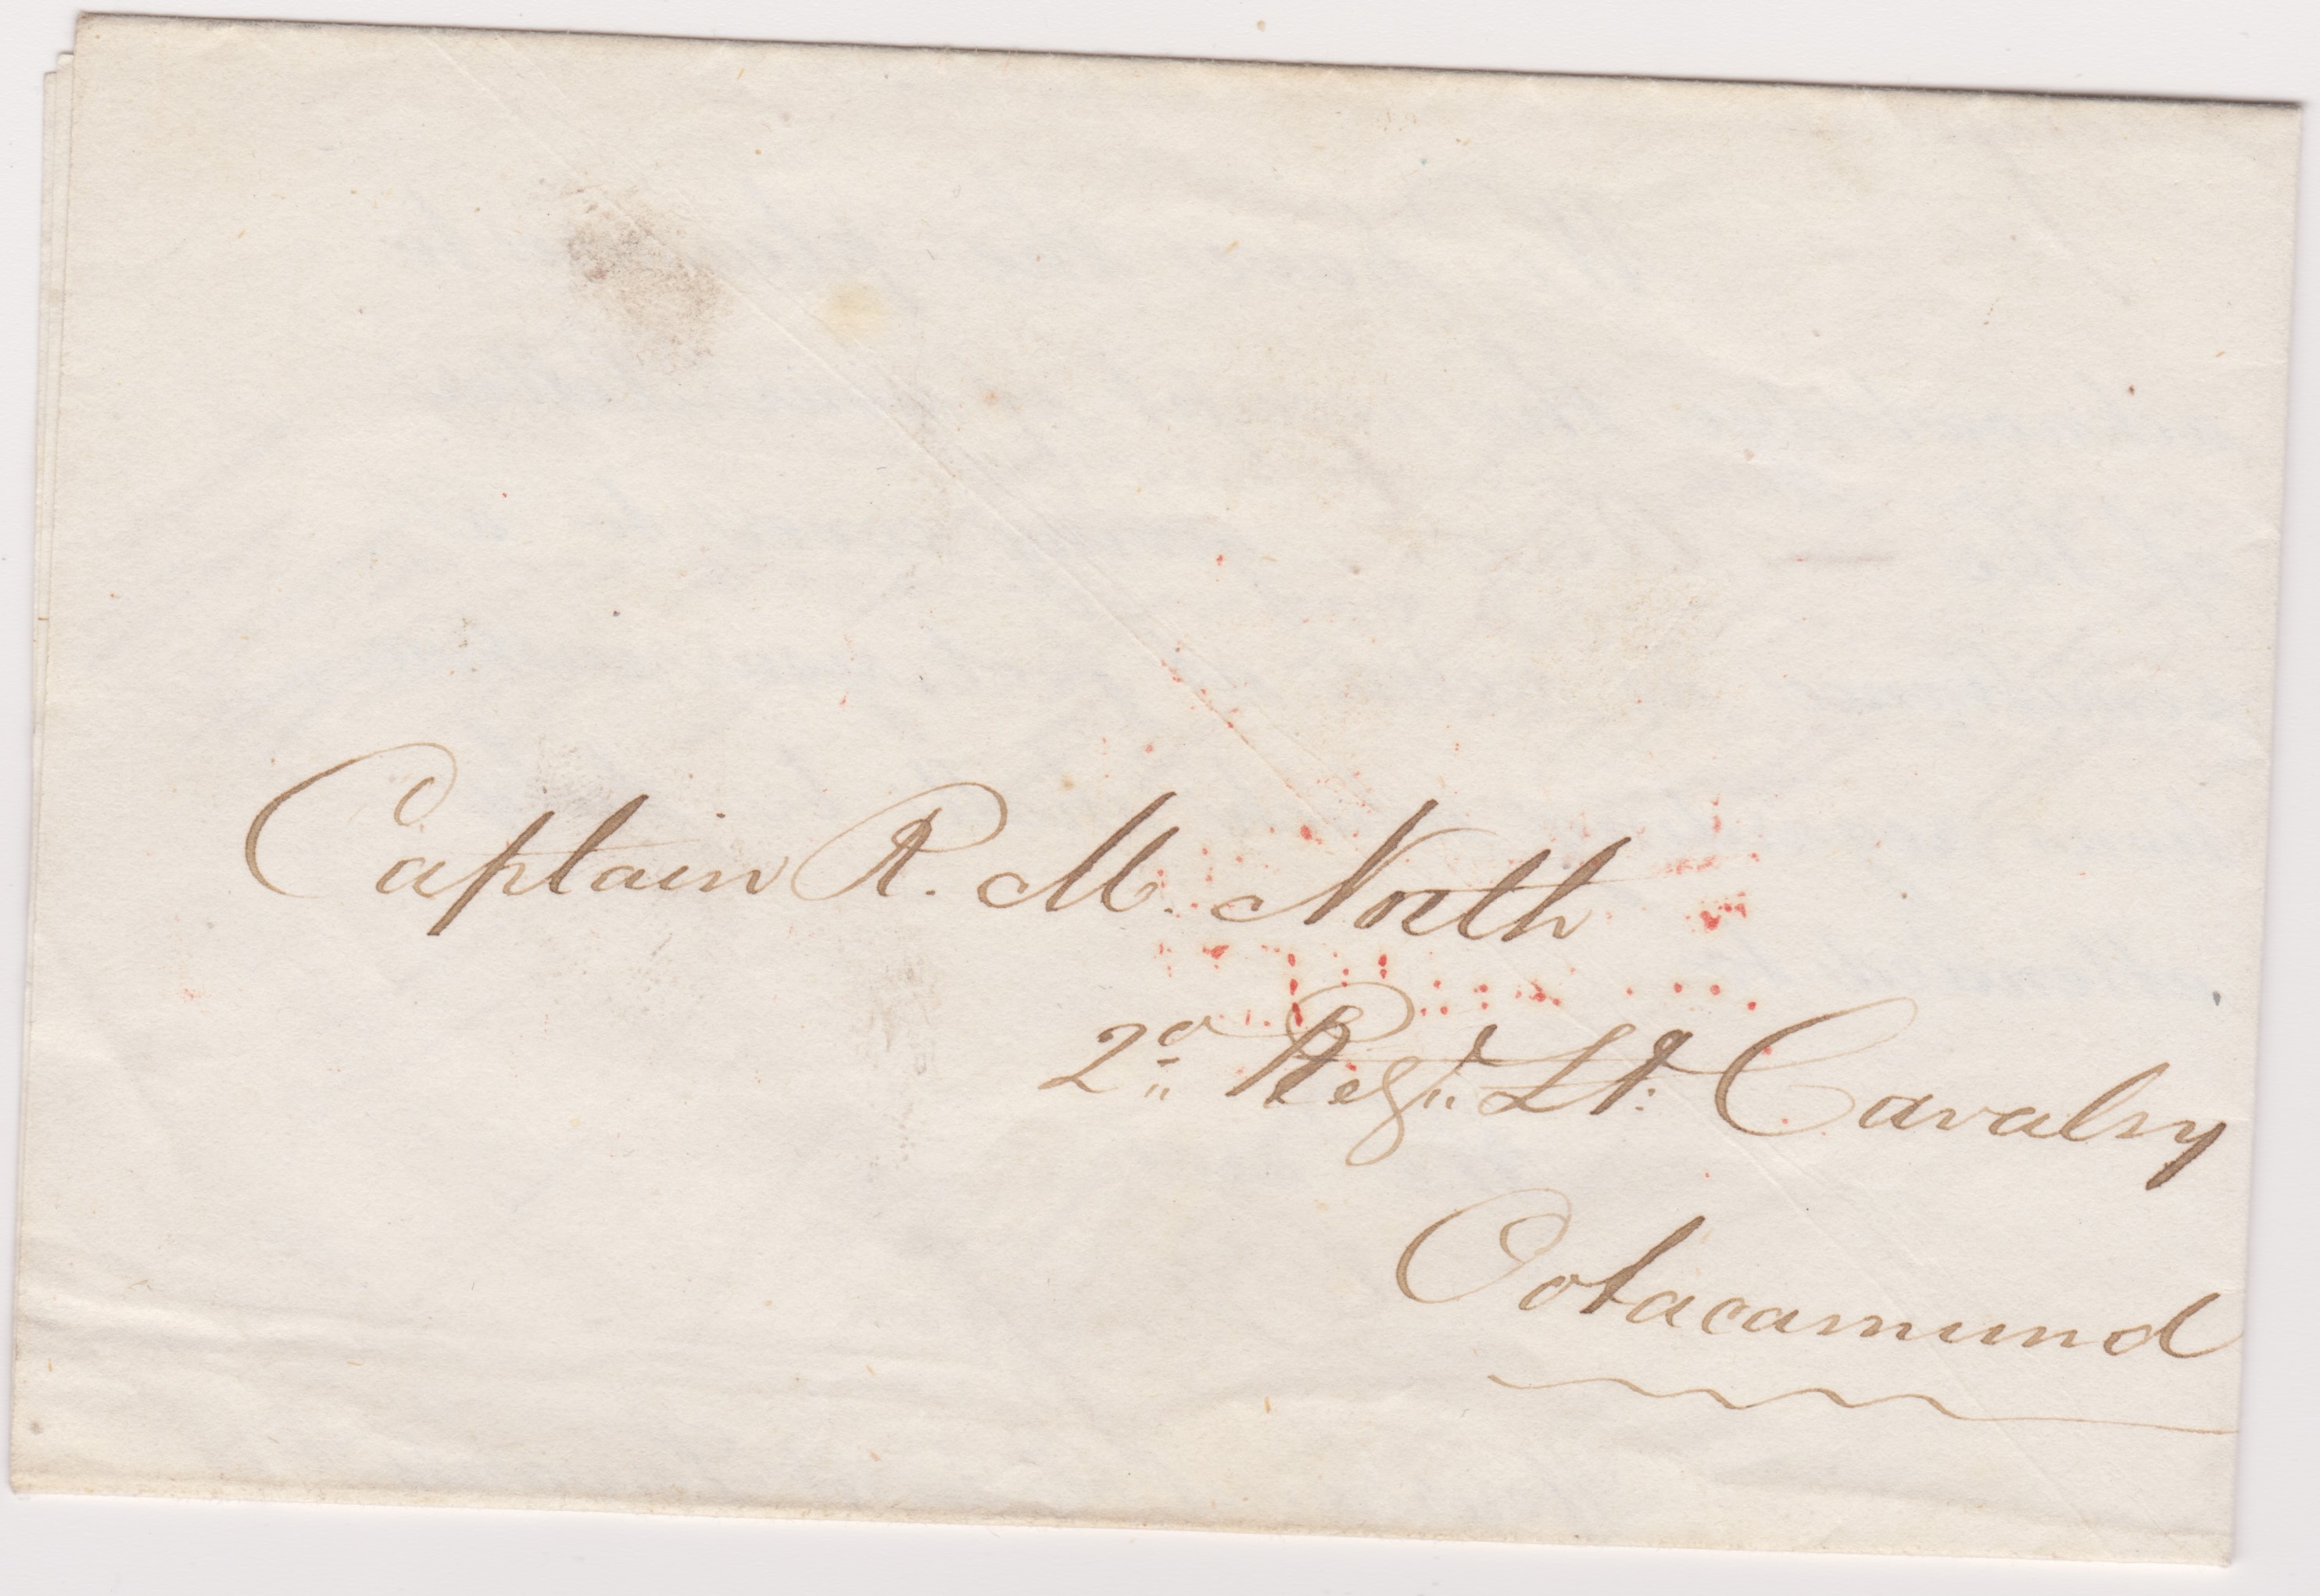 Captain R. M. North
2d Regt. Lt. Cavalry
Ootacamund